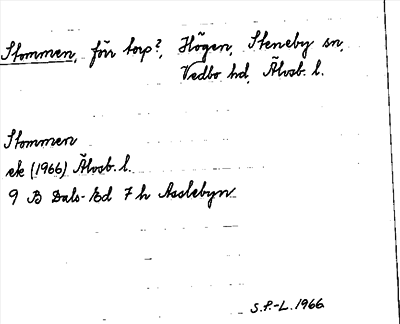 Stommen, förr torp?, Högen, Steneby sn,
Vedbo hd, Älvsb. l.
Stommen
ek (1966) Älvsb. l.
9 B Dals-Ed 7 h Asslebyn
S.F.-L. 1966